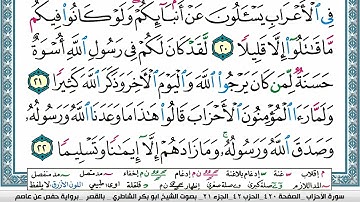 فِى ٱلْأَعْرَابِ يَسْـَٔلُونَ عَنْ أَنۢبَآئِكُمْ ۖ وَلَوْ كَانُوا۟ فِيكُم
مَّا قَـٰتَلُوٓا۟ إِلَّا قَلِيلًا ٢٠ لَّقَدْ كَانَ لَكُمْ فِى رَسُولِ ٱللَّهِ أُسْوَةٌ
حَسَنَةٌ لِّمَن كَانَ يَرْجُوا۟ ٱللَّهَ وَٱلْيَوْمَ ٱلْـَٔاخِرَ وَذَكَرَ ٱللَّهَ كَثِيرًا ٢١
وَلَمَّا رَءَا ٱلْمُؤْمِنُونَ ٱلْأَحْزَابَ قَالُوا۟ هَـٰذَا مَا وَعَدَنَا ٱللَّهُ وَرَسُولُهُۥ
وَصَدَقَ ٱللَّهُ وَرَسُولُهُۥ ۚ وَمَا زَادَهُمْ إِلَّآ إِيمَـٰنًا وَتَسْلِيمًا ٢٢
سورة الأحزاب - الصفحة ٤٢٠ - الحزب ٤٢ - الجزء ٢١ - بصوت الشيخ أبو بكر الشاطري - بالقصر - برواية حفص عن عاصم